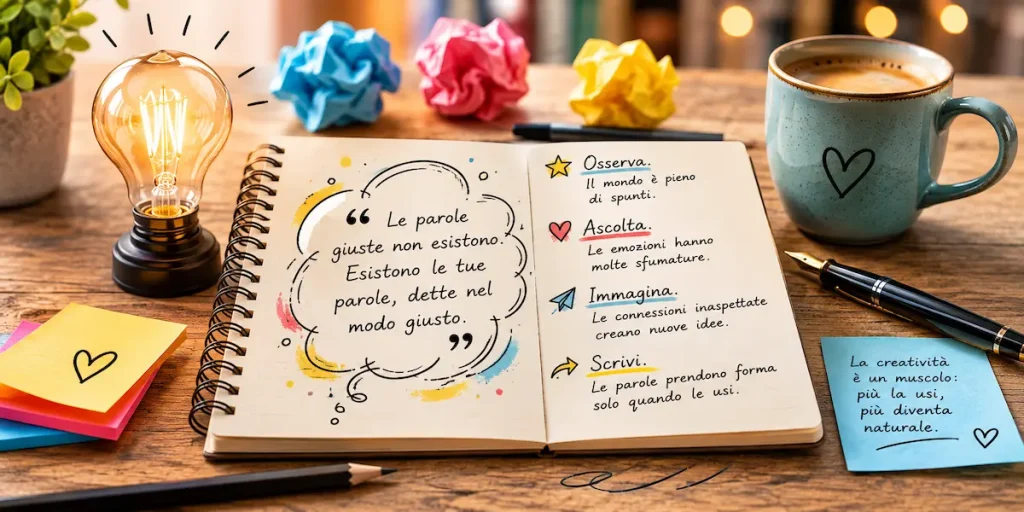 “ Le parole
giuste non esistono.
Esistono le tue
parole, dette nel
modo giusto. ”
Osserva.
Il mondo è pieno
di spunti.
Ascolta.
Le emozioni hanno
molte sfumature.
Immagina.
Le connessioni inaspettate
creano nuove idee.
Scrivi.
Le parole prendono forma
solo quando le usi.
La creatività
è un muscolo:
più la usi,
più diventa
naturale.